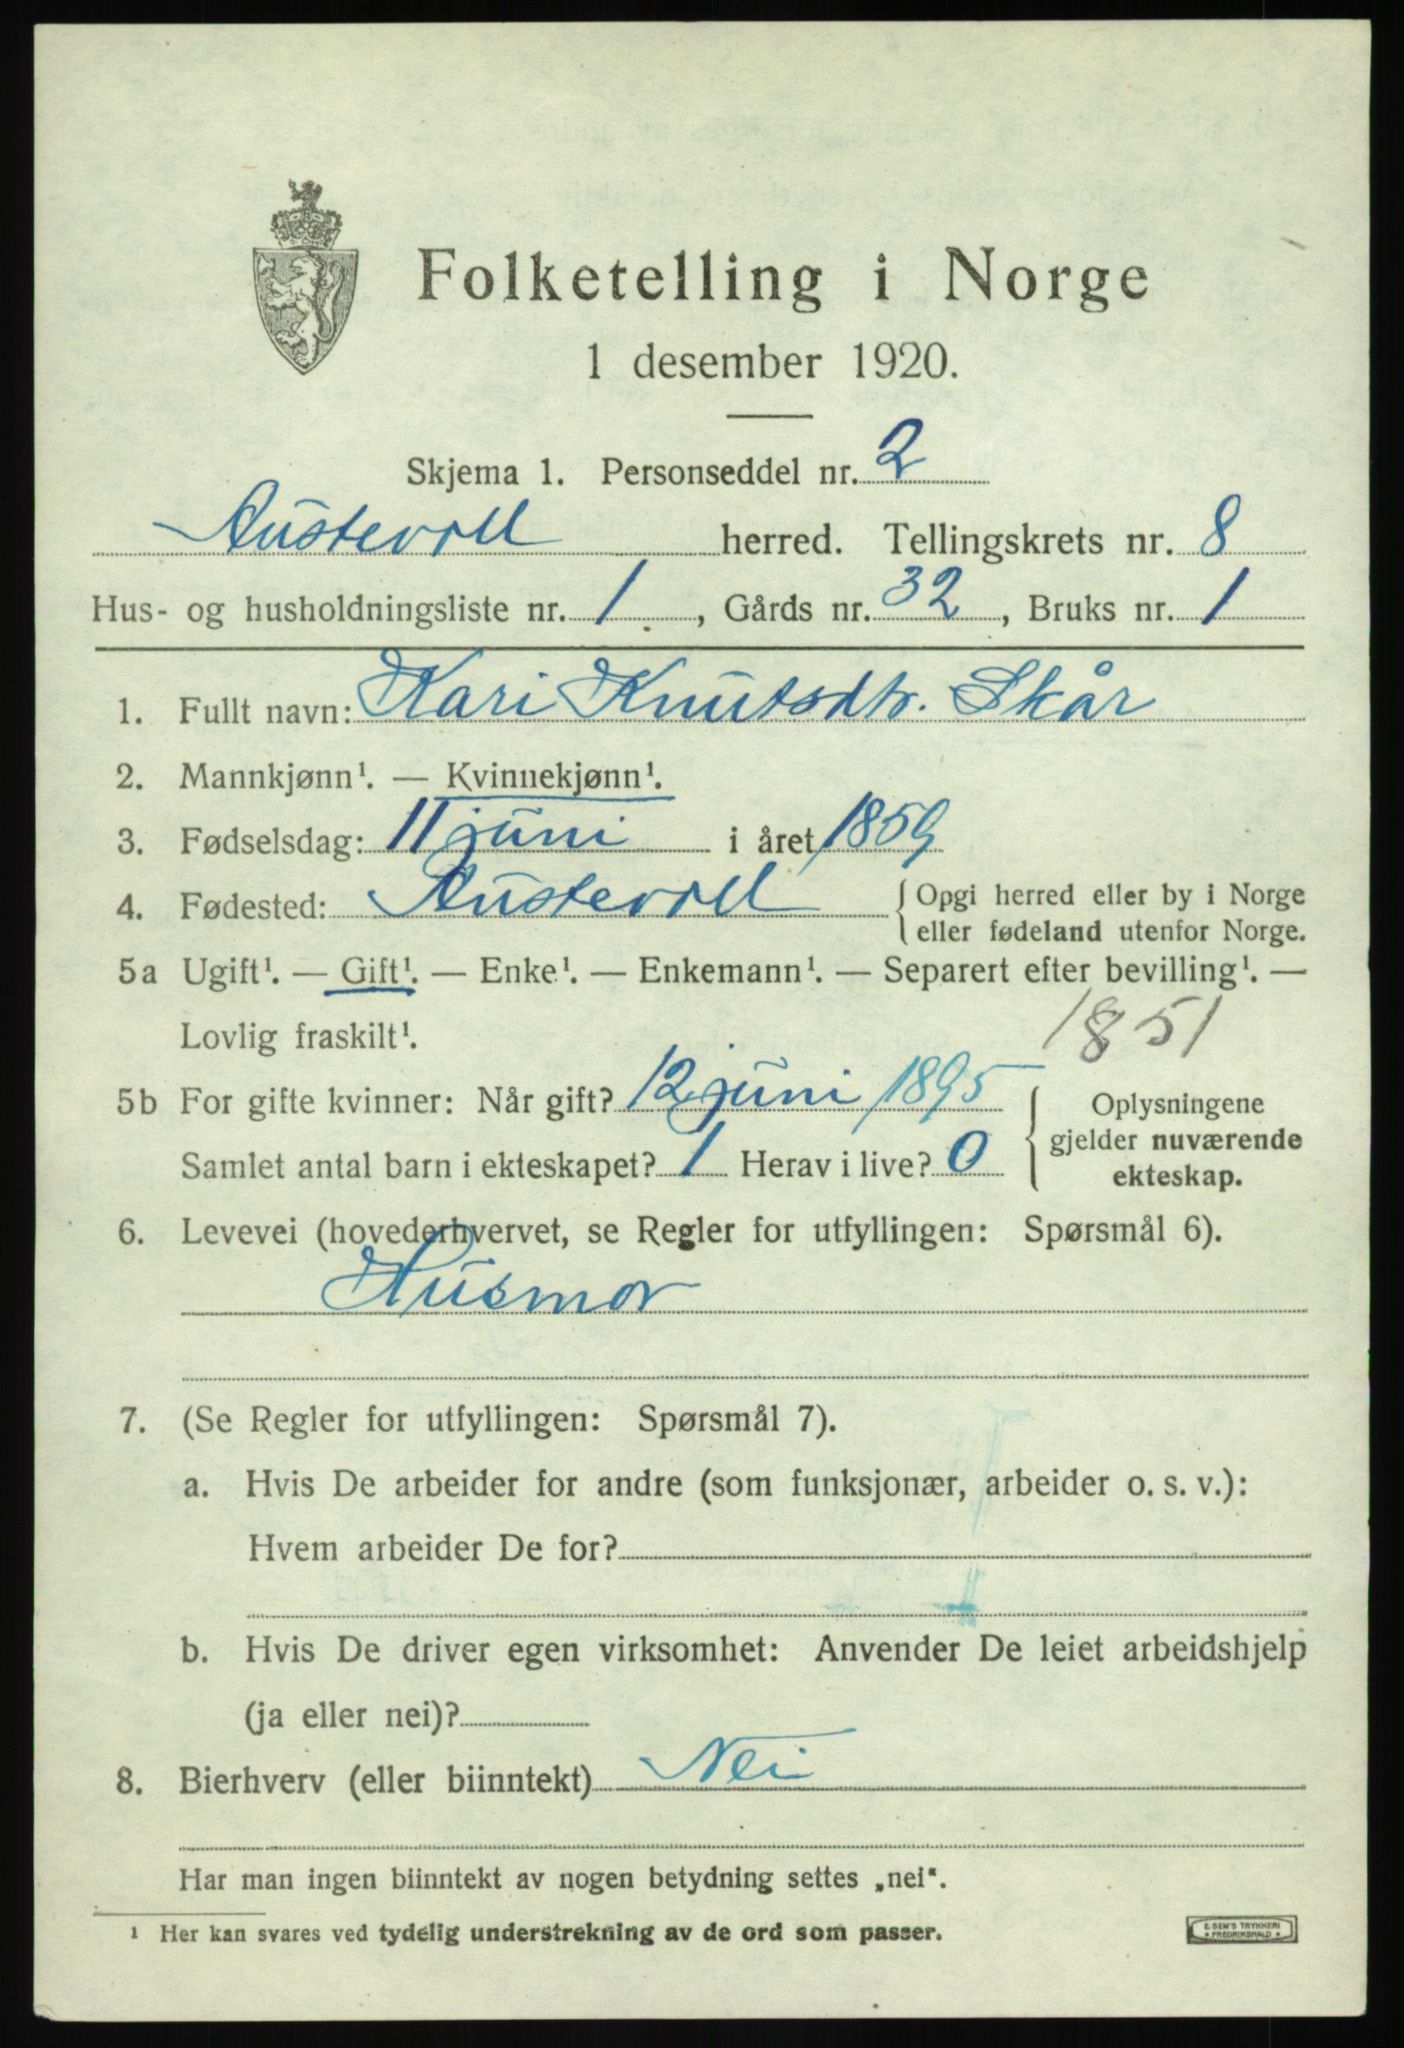 Folketelling i Norge
1 desember 1920.
Skjema 1. Personseddel nr. 2
Austevoll herred. Tellingskrets nr. 8
Hus- og husholdningsliste nr. 1, Gårds nr. 32, Bruks nr. 1
1. Fullt navn: Kari Knutsdtr. Skår
2. Mannkjønn¹. — Kvinnekjønn¹.
3. Fødselsdag: 11 juni i året 1859
4. Fødested: Austevoll { Opgi herred eller by i Norge
eller fødeland utenfor Norge.
5a Ugift¹. — Gift¹. — Enke¹. — Enkemann¹. — Separert efter bevilling¹. —
Lovlig fraskilt¹. 1851
5b For gifte kvinner: Når gift? 12 juni 1895 { Oplysningene
gjelder nuværende
Samlet antal barn i ekteskapet? 1 Herav i live? 0 ekteskap.
6. Levevei (hovederhvervet, se Regler for utfyllingen: Spørsmål 6).
Husmor
7. (Se Regler for utfyllingen: Spørsmål 7).
a. Hvis De arbeider for andre (som funksjonær, arbeider o. s. v.):
Hvem arbeider De for?
b. Hvis De driver egen virksomhet: Anvender De leiet arbeidshjelp
(ja eller nei)?
8. Bierhverv (eller biinntekt) Nei
Har man ingen biinntekt av nogen betydning settes „nei“.
¹ Her kan svares ved tydelig understrekning av de ord som passer.
E. SEM'S TRYKKERI
* FREDRIKSHALD *